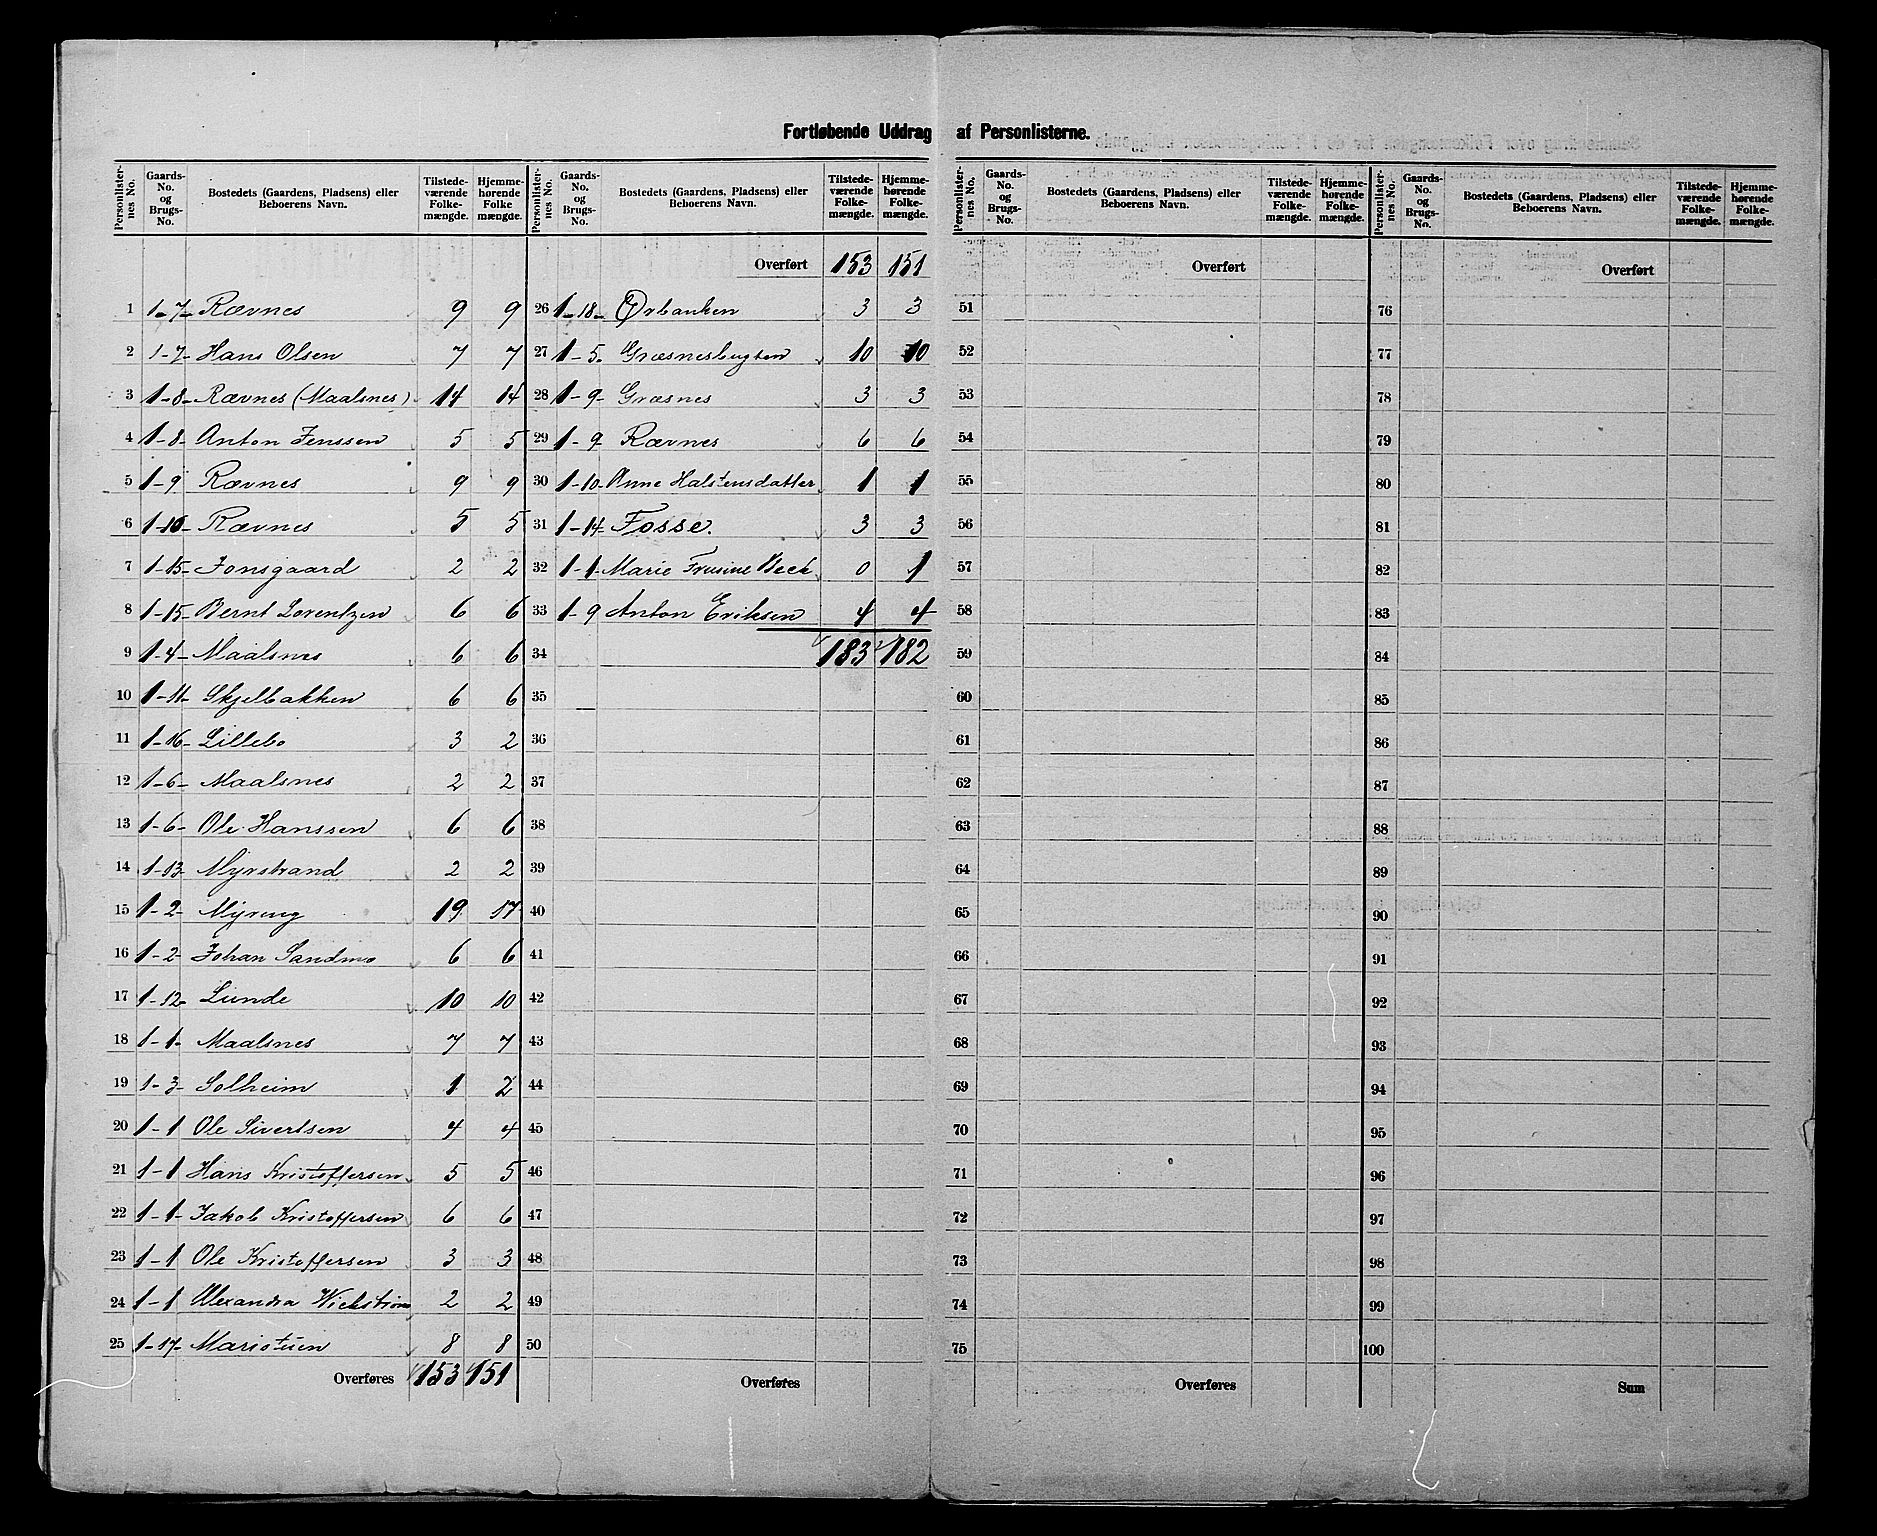 Fortløbende Uddrag af Personlisterne.
Personlisternes No. Gaards-No. og Brugs-No. Bostedets (Gaardens, Pladsens) eller Beboerens Navn. Tilstedeværende Folkemængde. Hjemmehørende Folkemængde.
1 1-7- Rævnes 9 9
2 1-7- Hans Olsen 7 7
3 1-8- Rævnes (Maalsnes) 14 14
4 1-8- Anton Jenssen 5 5
5 1-9 Rævnes 9 9
6 1-10- Rævnes 5 5
7 1-15- Jonsgaard 2 2
8 1-15- Bernt Lorentzen 6 6
9 1-4- Maalsnes 6 6
10 1-11- Skjelbakken 6 6
11 1-16- Lillebo 3 2
12 1-6- Maalsnes 2 2
13 1-6- Ole Hanssen 6 6
14 1-13- Myrstrand 2 2
15 1-2- Myreng 19 17
16 1-2- Johan Sandmo 6 6
17 1-12- Lunde 10 10
18 1-1- Maalsnes 7 7
19 1-3- Solheim 1 2
20 1-1 Ole Sivertsen 4 4
21 1-1 Hans Kristoffersen 5 5
22 1-1- Jakob Kristoffersen 6 6
23 1-1 Ole Kristoffersen 3 3
24 1-1 Alexandra Wickstrøm 2 2
25 1-17- Maristuen 8 8
Overføres 153 151
Personlisternes No. Gaards-No. og Brugs-No. Bostedets (Gaardens, Pladsens) eller Beboerens Navn. Tilstedeværende Folkemængde. Hjemmehørende Folkemængde.
Overført 153 151
26 1-18- Ørbanken 3 3
27 1-5. Græsnesbugten 10 10
28 1-9- Græsnes 3 3
29 1-9 Rævnes 6 6
30 1-10- Anne Halstensdatter 1 1
31 1-14- Fosse. 3 3
32 1-1- Marie Frusine Beck 0 1
33 1-9 Anton Eriksen 4 4
34 183 182
35
36
37
38
39
40
41
42
43
44
45
46
47
48
49
50
Overføres
Personlisternes No. Gaards-No. og Brugs-No. Bostedets (Gaardens, Pladsens) eller Beboerens Navn. Tilstedeværende Folkemængde. Hjemmehørende Folkemængde.
Overført
51
52
53
54
55
56
57
58
59
60
61
62
63
64
65
66
67
68
69
70
71
72
73
74
75
Overføres
Personlisternes No. Gaards-No. og Brugs-No. Bostedets (Gaardens, Pladsens) eller Beboerens Navn. Tilstedeværende Folkemængde. Hjemmehørende Folkemængde.
Overført
76
77
78
79
80
81
82
83
84
85
86
87
88
89
90
91
92
93
94
95
96
97
98
99
100
Sum